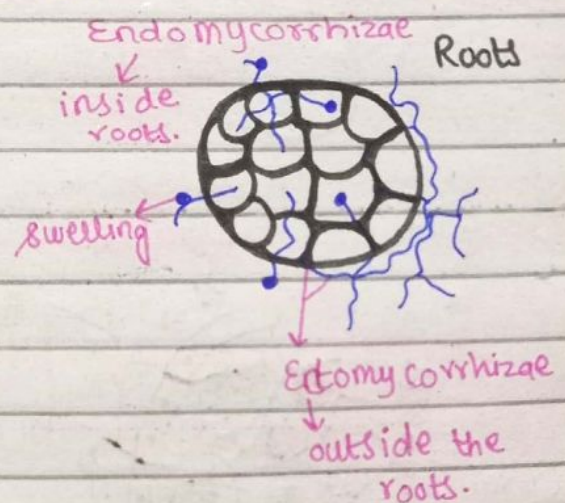 Endomycorrhizae
Roots
inside
roots.
swelling
Ectomycorrhizae
outside the
roots.